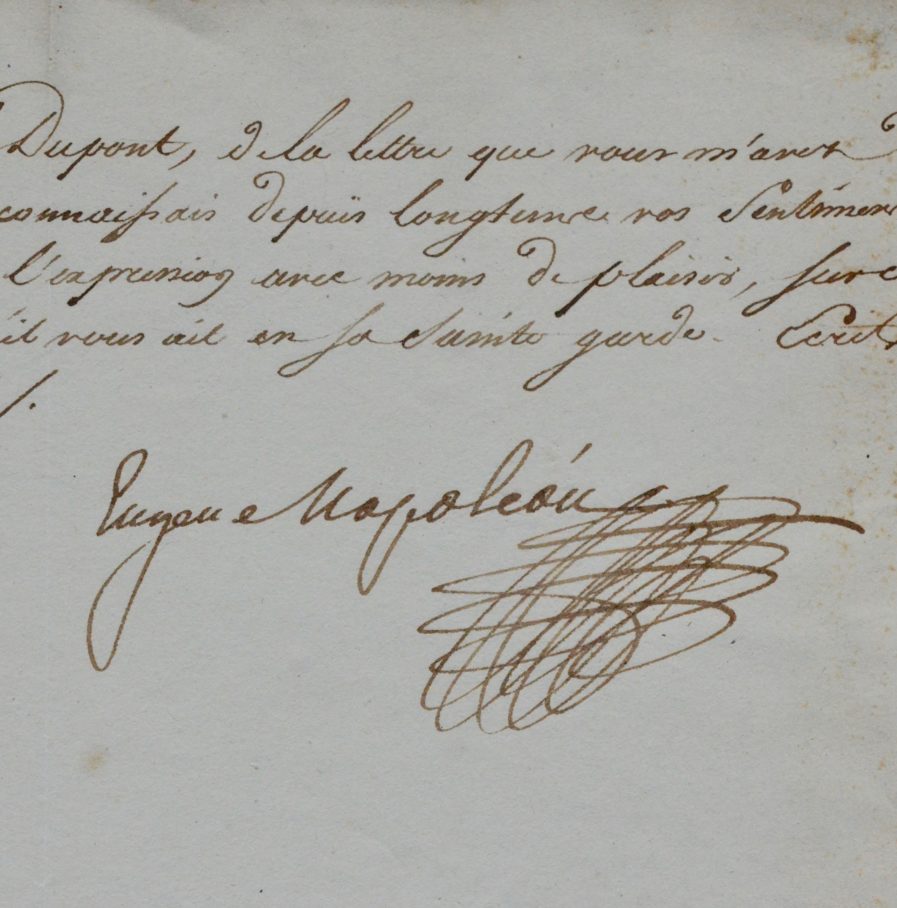 Dupont, de la lettre que vous m'avez
connaissais depuis longtems vos Sentimen
l'expression avec moins de plaisir, sur c
'il vous ait en sa Sainte garde. Ecrit
/.
Eugene Napoléon